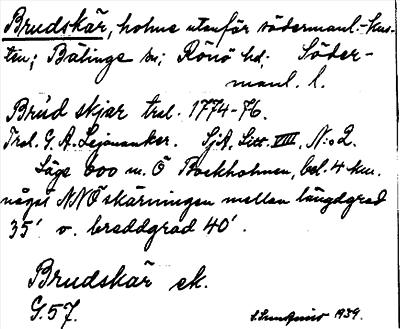 Brudskär, holme utanför södermanl.-kus-
ten; Bälinge sn; Rönö hd; Söder-
manl. l.
Brud skjär trol. 1774-76.
Trol. G. A. Lejonanker. SjA, Litt. VIII, N:o 2.
Läge 600 m. Ö Bockholmen, bel. 4 km.
något NNÖ skärningen mellan längdgrad
35' o. breddgrad 40'.
Brudskär ek.
G. 57.
1939.